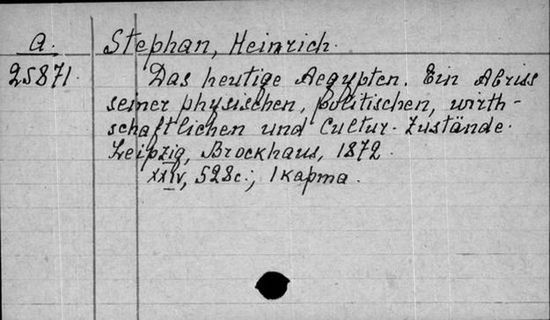 a. Stephan, Heinrich.
25871. Das heutige Aegypten. Ein Abriss
seiner physischen, politischen, wirth-
schaftlichen und Cultur-Zustände.
Leipzig, Brockhaus, 1872.
XXIV, 528 с.; 1 карта.